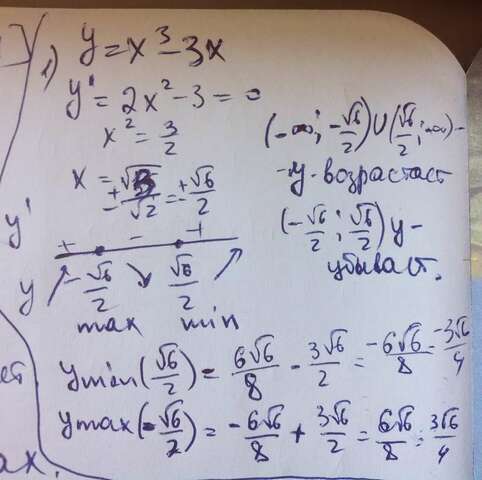 1) y = x³ - 3x
y' = 2x² - 3 = 0
x² = 3/2
x = ±√3/√2 = ±√6/2
(-∞; -√6/2) ∪ (√6/2; +∞) -
- y - возрастает
(-√6/2; √6/2) y -
убывает.
y' + - +
y -√6/2 √6/2
max min
ymin(√6/2) = 6√6/8 - 3√6/2 = -6√6/8 = -3√6/4
ymax(-√6/2) = -6√6/8 + 3√6/2 = 6√6/8 = 3√6/4